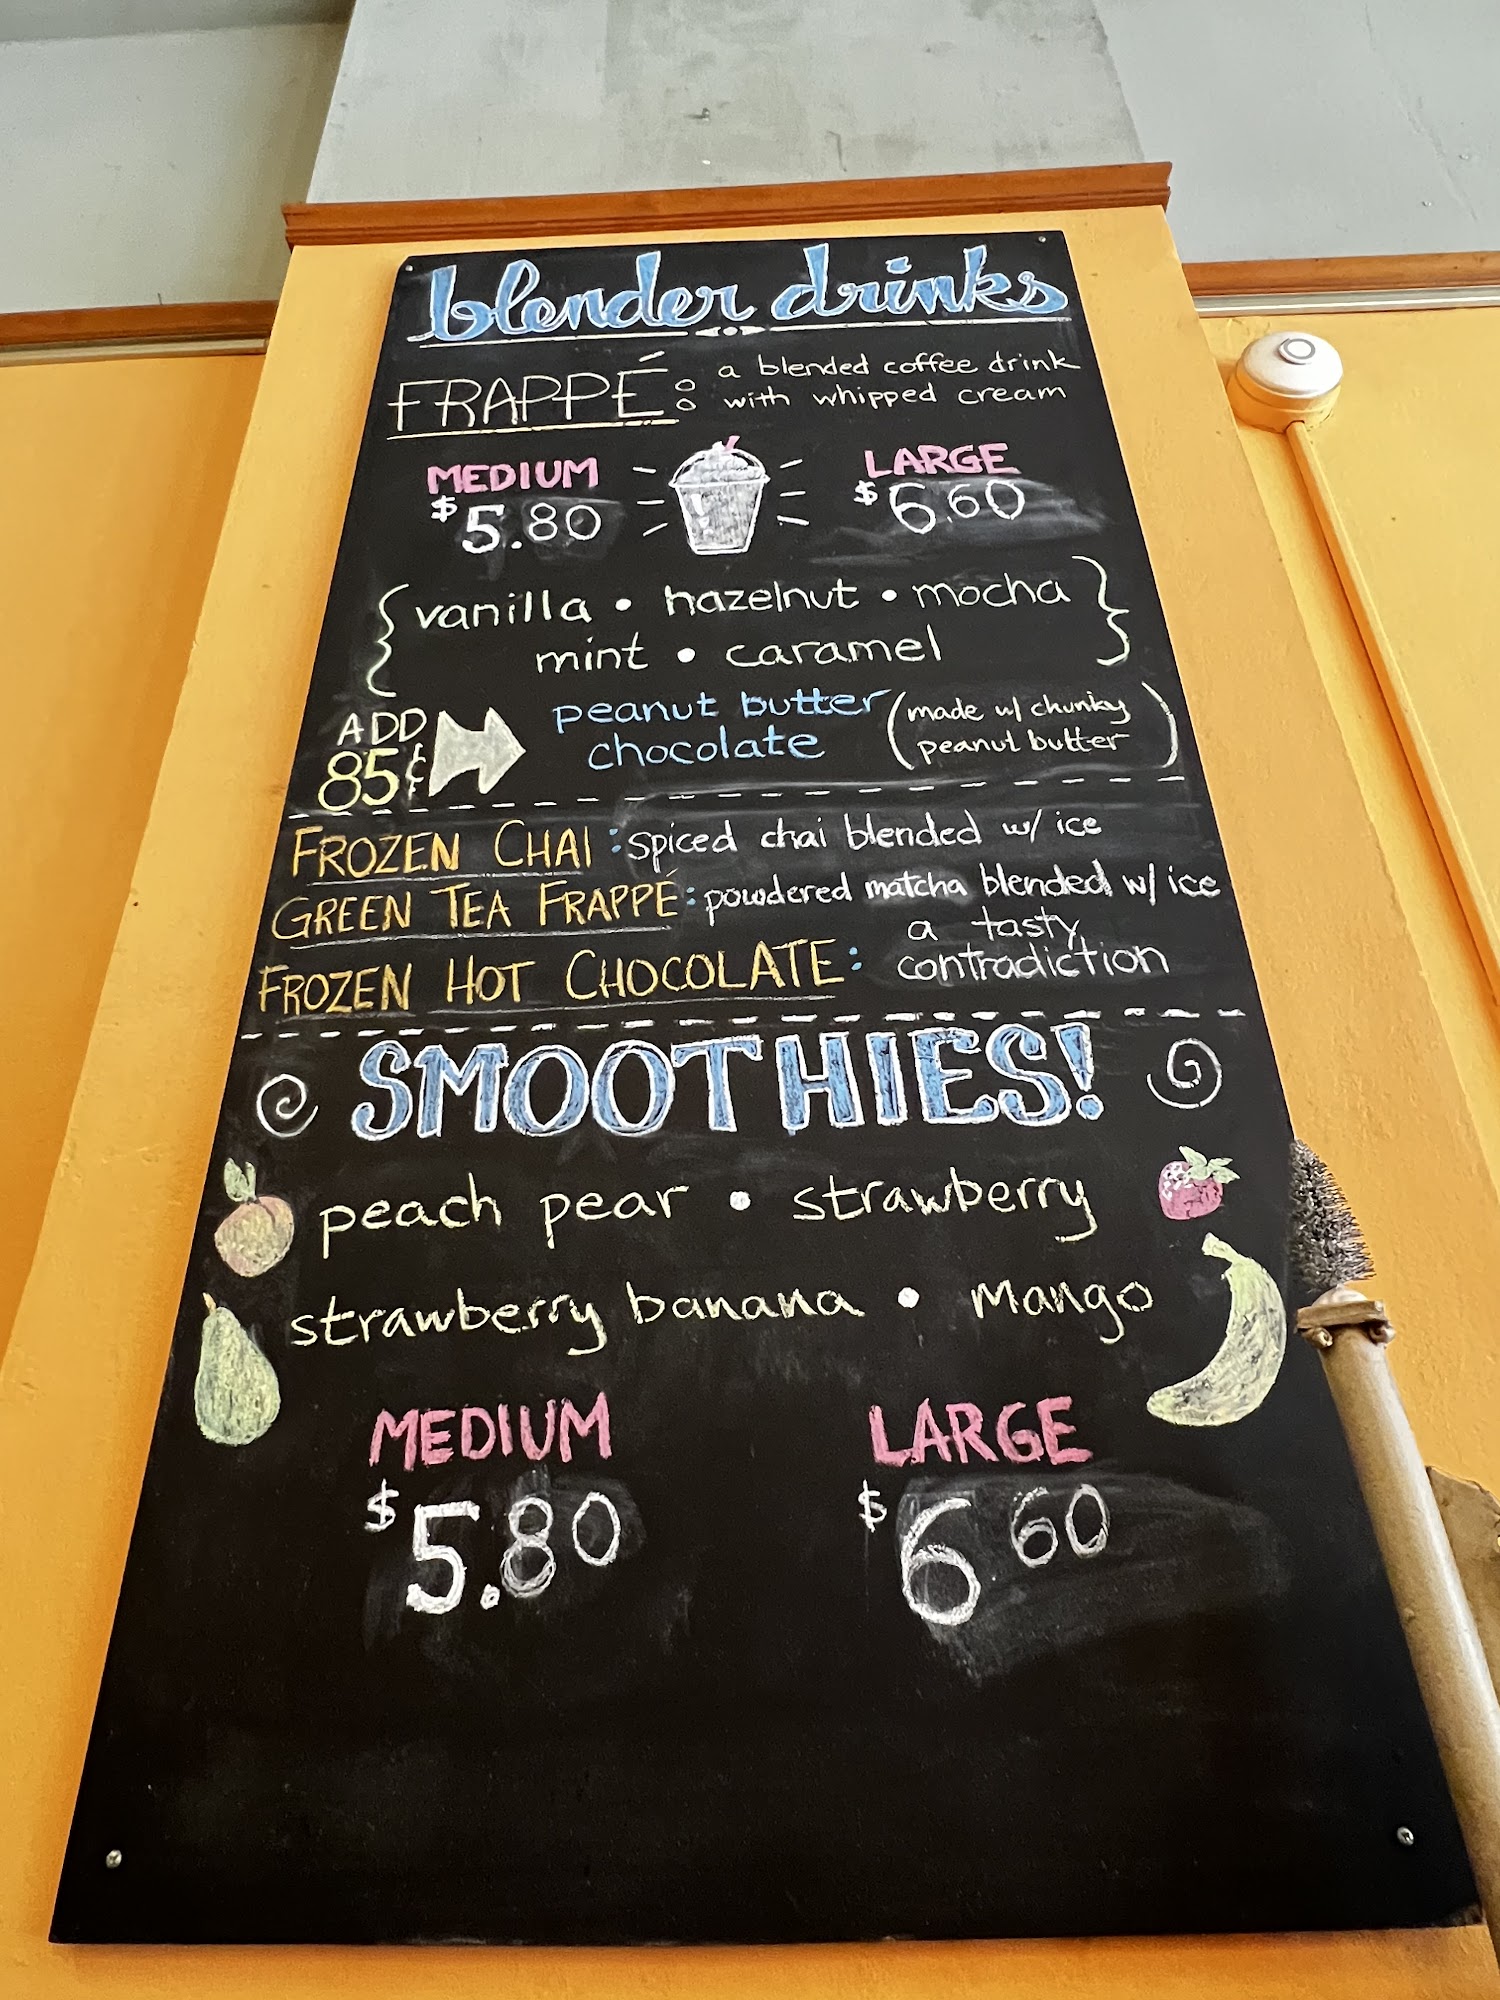 blender drinks
FRAPPÉ: a blended coffee drink
with whipped cream
MEDIUM LARGE
$5.80 $6.60
{vanilla • hazelnut • mocha
mint • caramel}
ADD 85¢ peanut butter (made w/ chunky
chocolate peanut butter)
FROZEN CHAI: spiced chai blended w/ ice
GREEN TEA FRAPPÉ: powdered matcha blended w/ ice
FROZEN HOT CHOCOLATE: a tasty
contradiction
SMOOTHIES!
peach pear • strawberry
strawberry banana • mango
MEDIUM LARGE
$5.80 $6 60